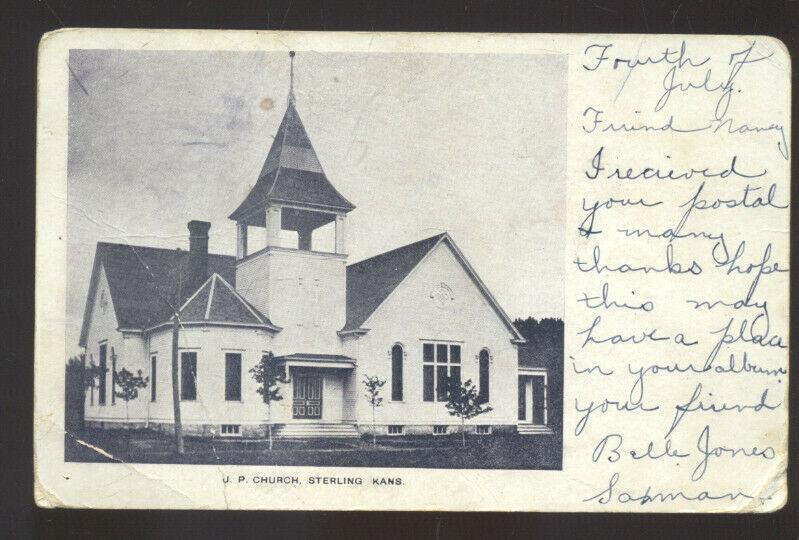 Fourth of
July.
Friend Nancy
I recieved
your postal
& many
thanks hope
this may
have a place
in your album
your friend
Belle Jones
J. P. CHURCH, STERLING KANS.